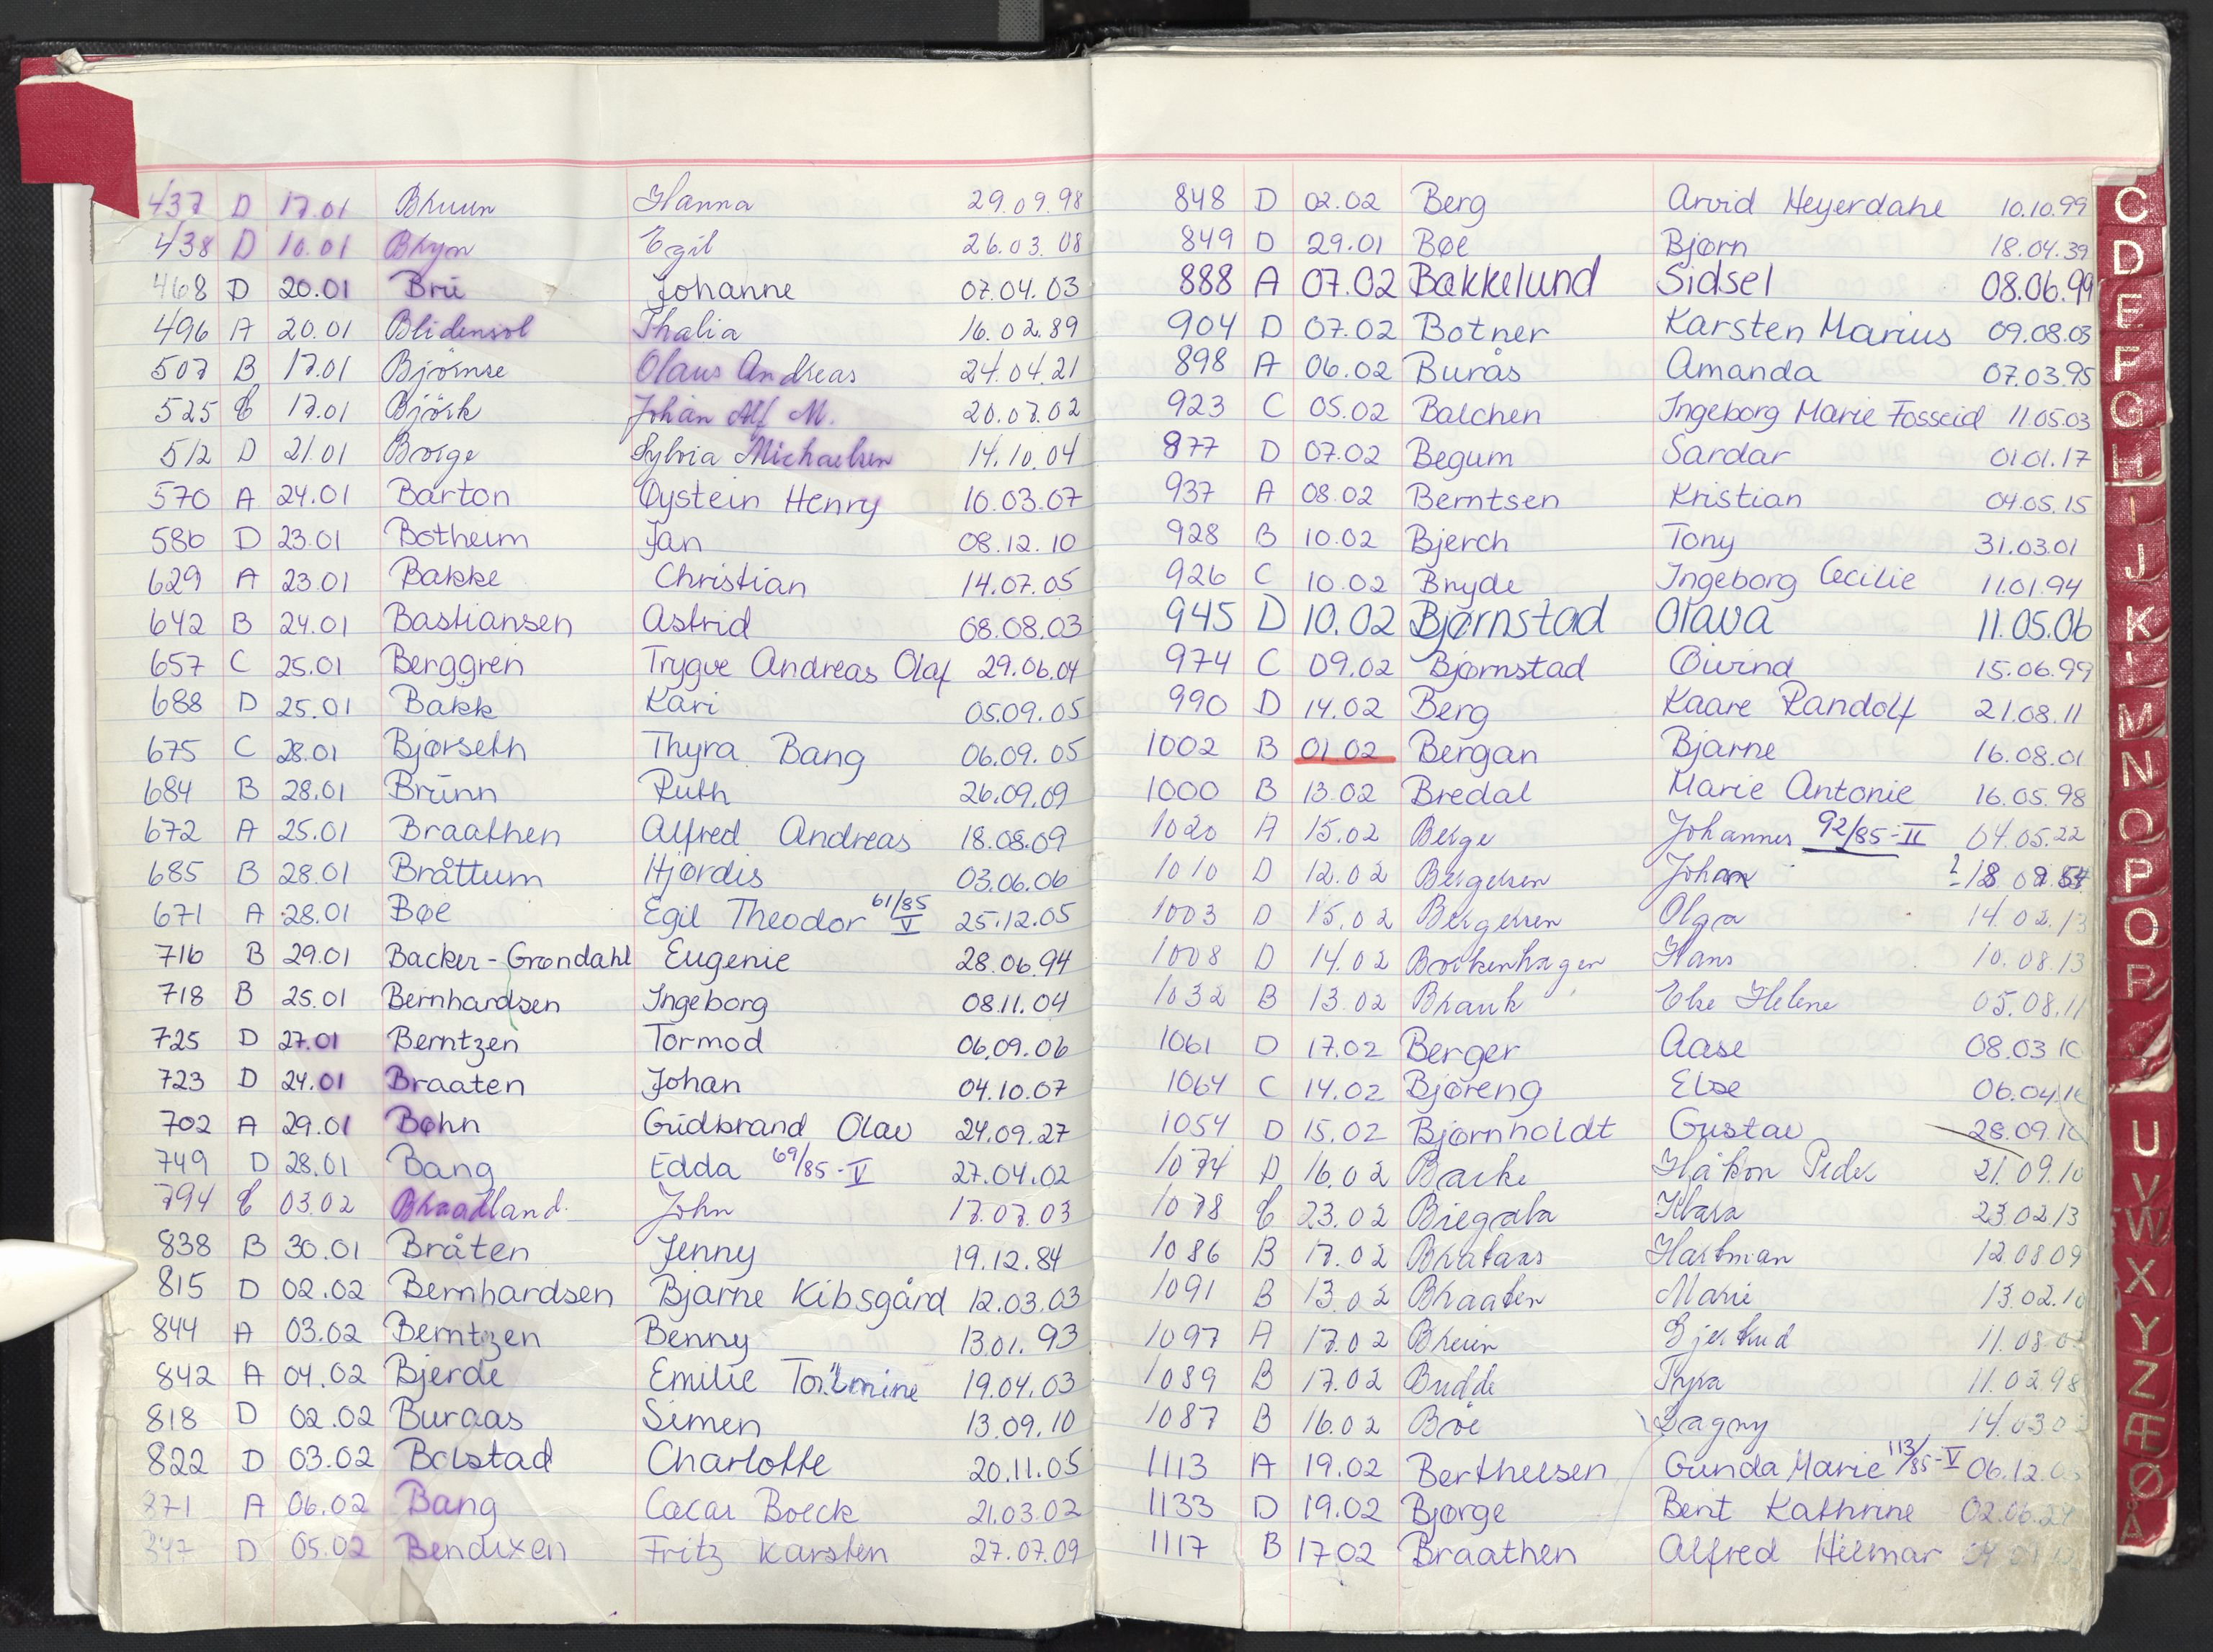 437 D 17.01 Bruun Hanna 29.09.98
438 D 10.01 Bryn Egil 26.03.08
468 D 20.01 Brü Johanne 07.04.03
496 A 20.01 Blidensol Thalia 16.02.89
507 B 17.01 Björnse Olaus Andreas 24.04.21
525 C 17.01 Björk Johan Alf M. 20.07.02
512 D 21.01 Borge Sylvia Michaelsen 14.10.04
570 A 24.01 Barton Øystein Henry 10.03.07
586 D 23.01 Botheim Jan 08.12.10
629 A 23.01 Bakke Christian 14.07.05
642 B 24.01 Bastiansen Astrid 08.08.03
657 C 25.01 Berggren Trygve Andreas Olaf 29.06.04
688 D 25.01 Bakk Kari 05.09.05
675 C 28.01 Bjørseth Thyra Bang 06.09.05
684 B 28.01 Brünn Ruth 26.09.09
672 A 25.01 Braathen Alfred Andreas 18.08.09
685 B 28.01 Bråttum Hjørdis 03.06.06
671 A 28.01 Bøe Egil Theodor 61/85 V 25.12.05
716 B 29.01 Backer-Grøndahl Eugenie 28.06.94
718 B 25.01 Bernhardsen Ingeborg 08.11.04
725 D 27.01 Berntzen Tormod 06.09.06
723 D 24.01 Braaten Johan 04.10.07
702 A 29.01 Bøhn Gudbrand Olav 24.09.27
749 D 28.01 Bang Edda 69/85-V 27.04.02
794 C 03.02 Braadland John 17.07.03
838 B 30.01 Bråten Jenny 19.12.84
815 D 02.02 Bernhardsen Bjarne Kibsgård 12.03.03
844 A 03.02 Berntzen Benny 13.01.93
842 A 04.02 Bjerde Emilie 19.04.03
818 D 02.02 Buraas Simen 13.09.10
822 D 03.02 Bolstad Charlotte 20.11.05
871 A 06.02 Bang Cæcar Boeck 21.03.02
847 D 05.02 Bendixen Fritz Karsten 27.07.09
848 D 02.02 Berg Arvid Heyerdahl 10.10.99
849 D 29.01 Bøe Bjørn 18.04.39
888 A 07.02 Bakkelund Sidsel 08.06.99
904 D 07.02 Botner Karsten Marius 09.08.03
898 A 06.02 Burås Amanda 07.03.95
923 C 05.02 Balchen Ingeborg Marie Fosseid 11.05.03
877 D 07.02 Begum Sardar 01.01.17
937 A 08.02 Berntsen Kristian 04.05.15
928 B 10.02 Bjerch Tony 31.03.01
926 C 10.02 Bryde Ingeborg Cecilie 11.01.94
945 D 10.02 Bjørnstad Olava 11.05.06
974 C 09.02 Bjørnstad Øivind 15.06.99
990 D 14.02 Berg Kaare Randolf 21.08.11
1002 B 01.02 Bergan Bjarne 16.08.01
1000 B 13.02 Bredal Marie Antonie 16.05.98
1020 A 15.02 Berge Johannes 92/85-II 04.05.22
1010 D 12.02 Bergersen Johan
1003 D 15.02 Bergersen Olga 14.02.13
1008 D 14.02 Brokenhagen Hans 10.08.13
1032 B 13.02 Brauk Else Helene 05.08.11
1061 D 17.02 Berger Aase 08.03
1064 C 14.02 Bjøreng Else 06.04
1054 D 15.02 Bjørnholdt Gustav 28.09
1074 D 16.02 Bakke Håkon Peder 21.09.10
1078 C 23.02 Biegala Klara 23.02.13
1086 B 17.02 Brataas Hartman 12.08.09
1091 B 13.02 Braaten Marie 13.02
1097 A 17.02 Breien Gjertrud 11.08
1089 B 17.02 Budde Thyra 11.02.98
1087 B 16.02 Boë Dagny 14.03
1113 A 19.02 Berthelsen Gunda Marie 113/85-V 06.12
1133 D 19.02 Bjørge Berit Kathrine 02.06.24
1117 B 17.02 Braathen Alfred Hilmar
C
D
E
F
G
H
I
J
K
L
M
N
O
P
Q
R
U
V
W
X
Y
Z
Æ
Ø
Å